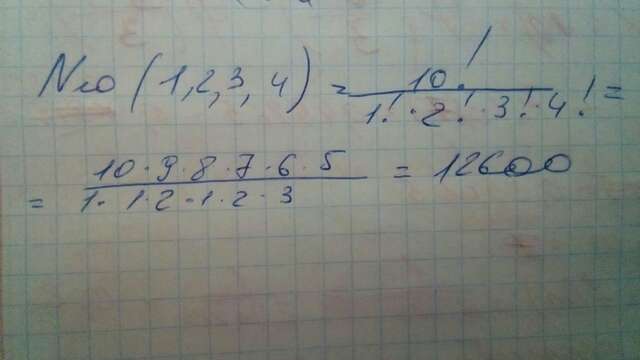 N10 (1,2,3,4) = 10! / 1!·2!·3!·4! =
= 10·9·8·7·6·5 / 1·1·2·1·2·3 = 12600